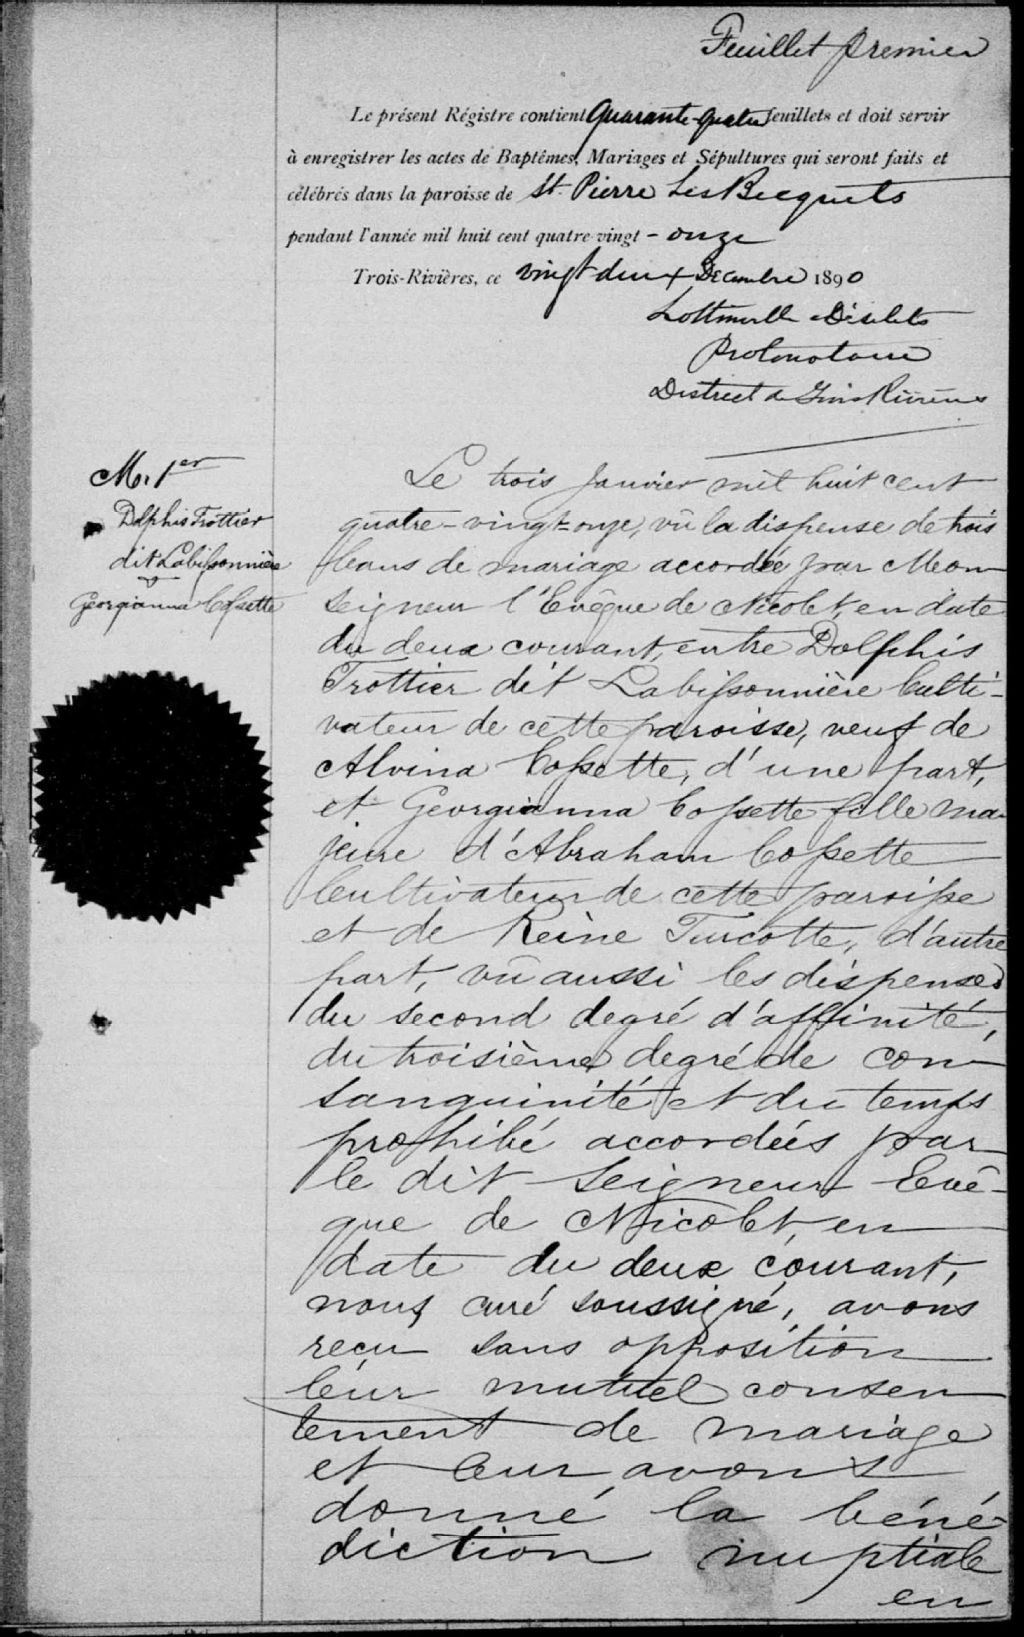 Feuillet premier
Le présent Régistre contient Quarante-quatre feuillets et doit servir
à enregistrer les actes de Baptêmes, Mariages et Sépultures qui seront faits et
célébrés dans la paroisse de St. Pierre Les Becquets
pendant l'année mil huit cent quatre-vingt-onze
Trois-Rivières, ce vingt deux Décembre 1890
Désilets
Protonotaire
District de Trois Rivières
M. 1er
Dolphis Trottier
dit Labissonnière
&
Georgianna Cossette
Le trois Janvier mil huit cent
quatre-vingt-onze, vû la dispense de trois
bans de mariage accordée par Mon
seigneur l'Evêque de Nicolet, en date
du deux courant, entre Dolphis
Trottier dit Labissonnière Culti-
vateur de cette paroisse, veuf de
Alvina Cossette, d'une part,
et Georgianna Cossette fille ma-
jeure d'Abraham Cossette
Cultivateur de cette paroisse
et de Reine Turcotte, d'autre
part, vû aussi les dispenses
du second degré d'affinité,
du troisième degré de con
sanguinité et du temps
prohibé accordées par
le dit Seigneur Evê-
que de Nicolet, en
date du deux courant,
nous curé soussigné, avons
reçu sans opposition
leur mutuel consen
tement de mariage
et leur avons
donné la béné-
diction nuptiale
en